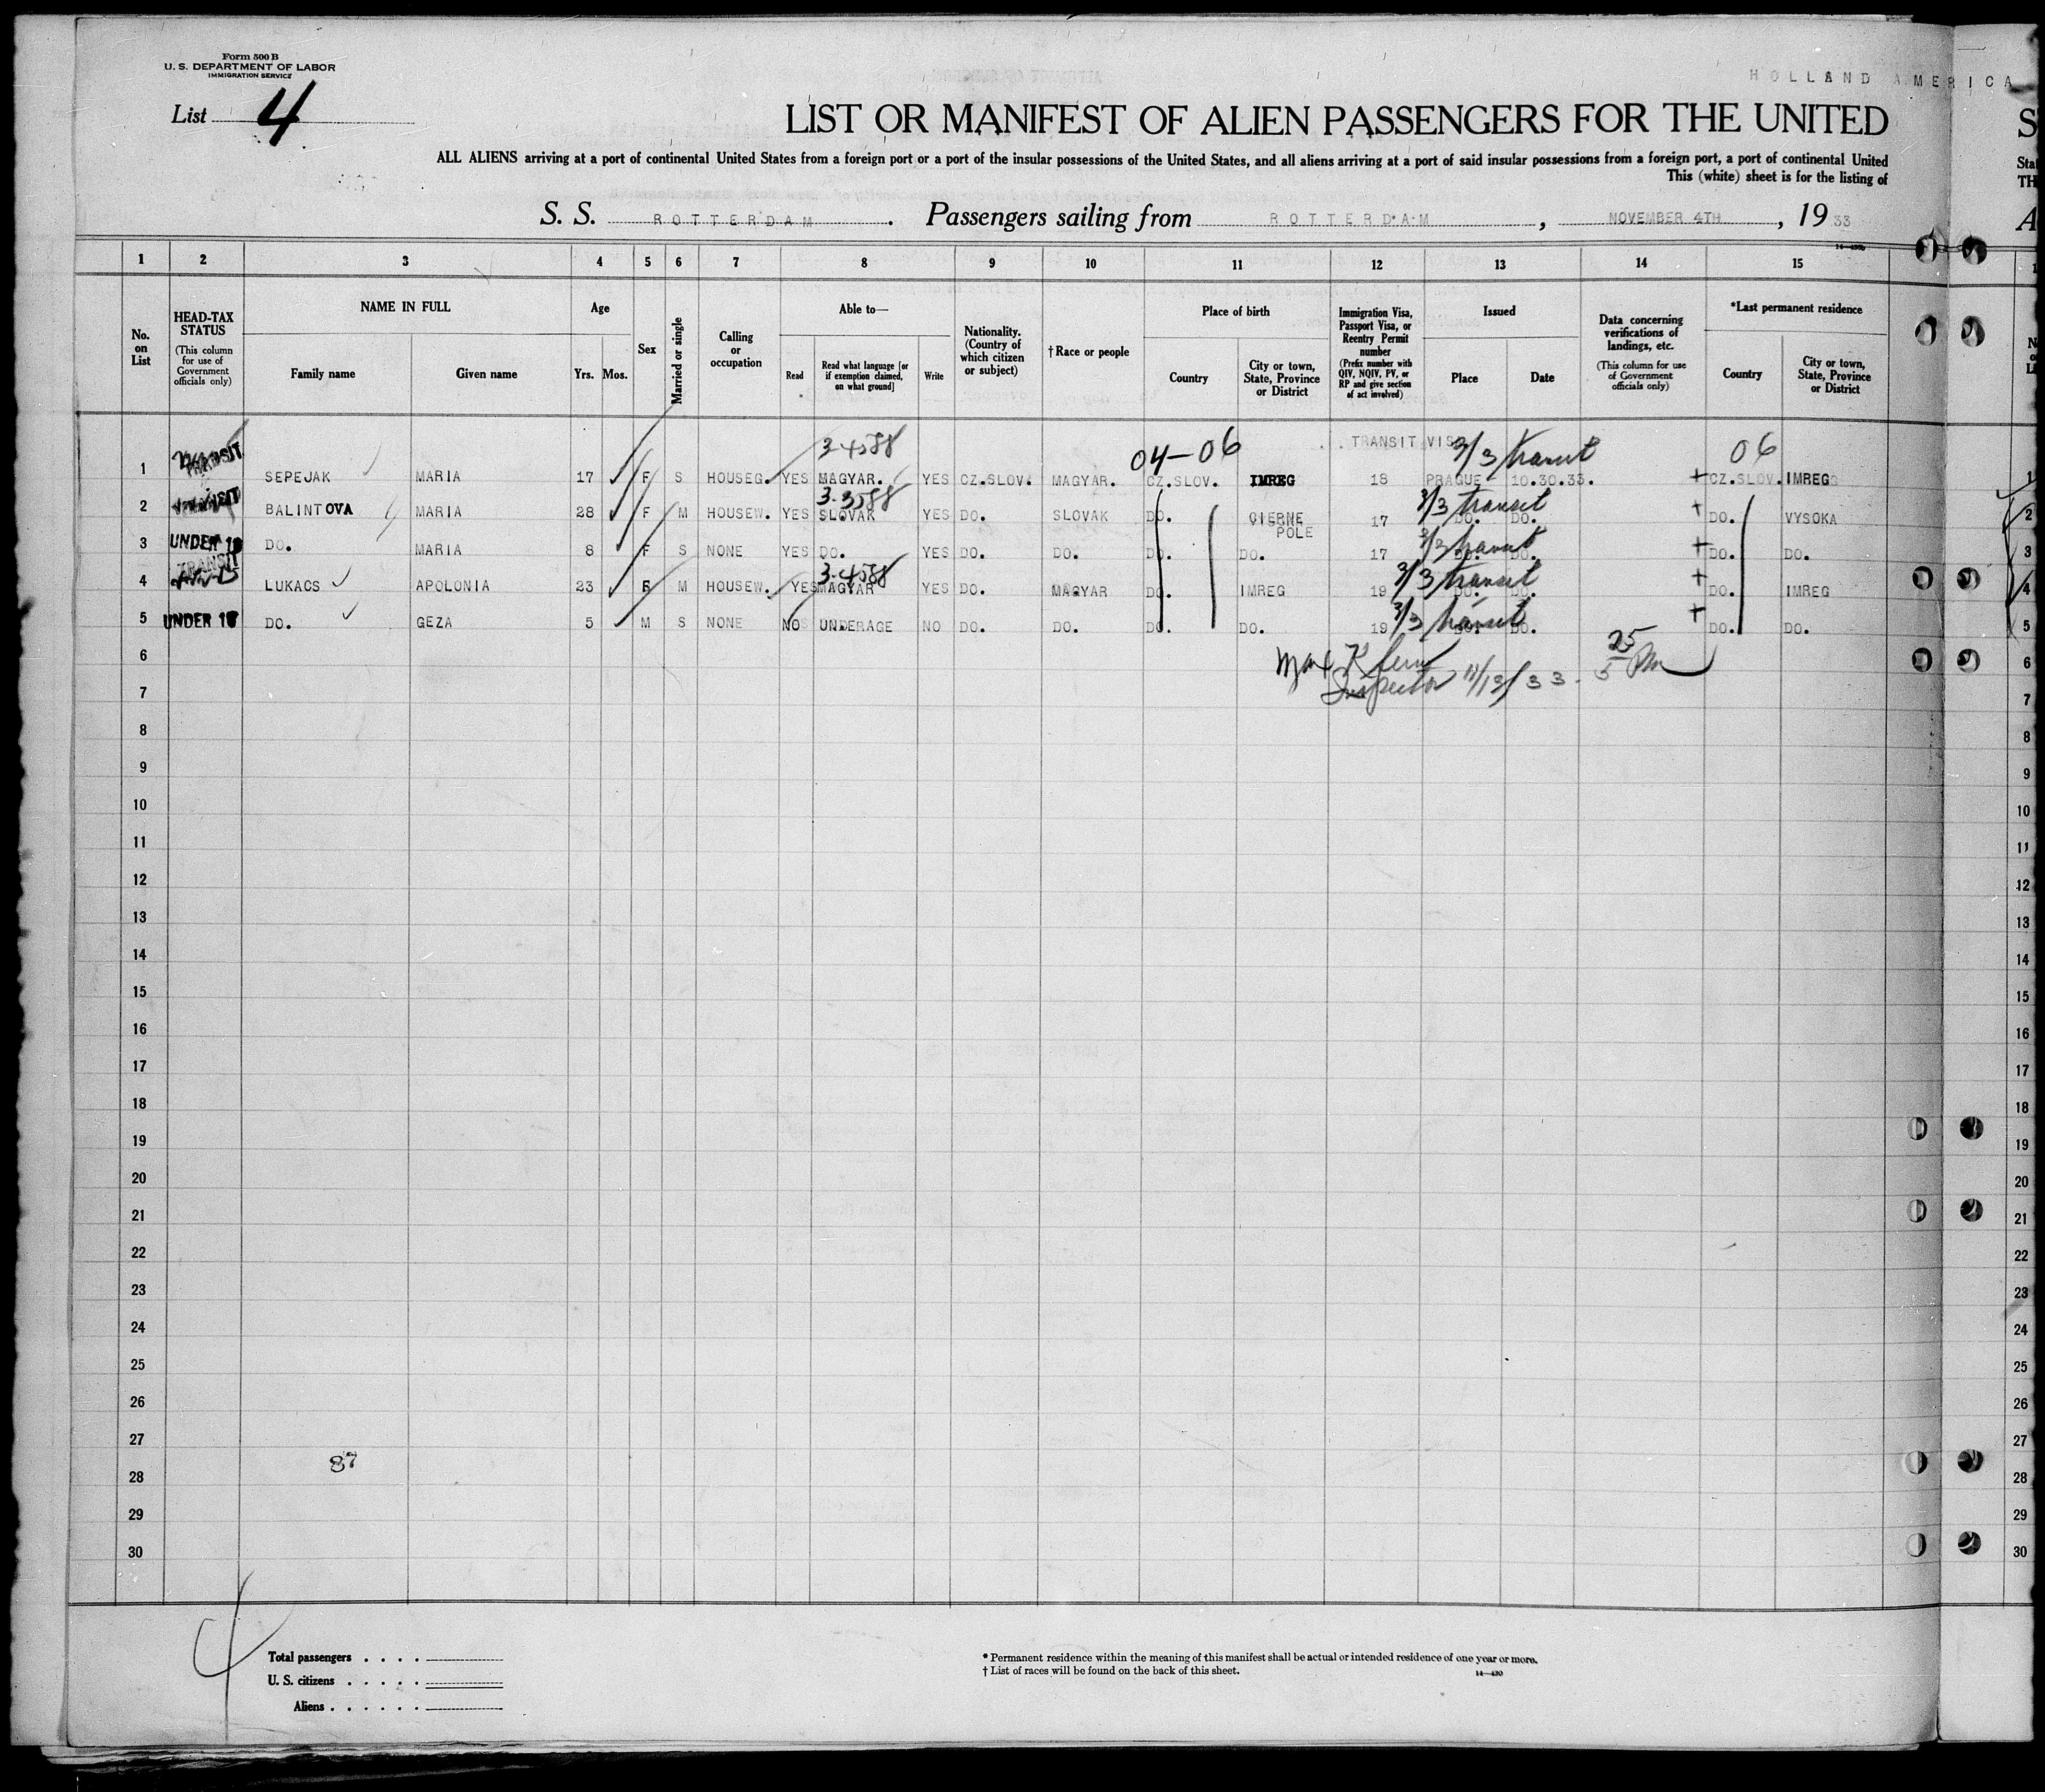 Form 500 B
U. S. DEPARTMENT OF LABOR
IMMIGRATION SERVICE
HOLLAND AMERICA
List 4
LIST OR MANIFEST OF ALIEN PASSENGERS FOR THE UNITED
ALL ALIENS arriving at a port of continental United States from a foreign port or a port of the insular possessions of the United States, and all aliens arriving at a port of said insular possessions from a foreign port, a port of continental United
This (white) sheet is for the listing of
S. S. ROTTERDAM. Passengers sailing from ROTTERDAM, NOVEMBER 4TH, 1933
1 2 3 4 5 6 7 8 9 10 11 12 13 14 15
No. on List
HEAD-TAX STATUS (This column for use of Government officials only)
NAME IN FULL
Family name
Given name
Age
Yrs. Mos.
Sex
Married or single
Calling or occupation
Able to—
Read
Read what language [or if exemption claimed, on what ground]
Write
Nationality. (Country of which citizen or subject)
† Race or people
Place of birth
Country
City or town, State, Province or District
Immigration Visa, Passport Visa, or Reentry Permit number (Prefix number with QIV, NQIV, PV, or RP and give section of act involved)
Issued
Place
Date
Data concerning verifications of landings, etc. (This column for use of Government officials only)
*Last permanent residence
Country
City or town, State, Province or District
3-4588 04-06 TRANSIT VIS 3/3 transit 06
1 TRANSIT SEPEJAK MARIA 17 F S HOUSEG. YES MAGYAR. YES CZ.SLOV. MAGYAR. CZ.SLOV. IMREG 18 PRAGUE 10.30.33. + CZ.SLOV. IMREG 1
3-3588 3/3 transit
2 TRANSIT BALINTOVA MARIA 28 F M HOUSEW. YES SLOVAK YES DO. SLOVAK DO. CIERNE POLE 17 DO. DO. + DO. VYSOKA 2
3/3 transit
3 UNDER 16 DO. MARIA 8 F S NONE YES DO. YES DO. DO. DO. DO. 17 DO. + DO. DO. 3
3-4588 3/3 transit
4 TRANSIT LUKACS APOLONIA 23 F M HOUSEW. YES MAGYAR YES DO. MAGYAR DO. IMREG 19 DO. DO. + DO. IMREG 4
3/3 transit
5 UNDER 16 DO. GEZA 5 M S NONE NO UNDERAGE NO DO. DO. DO. DO. 19 DO. DO. + DO. DO. 5
6 25 6
7 Inspector 11/13/33. 5 Pm 7
8 8
9 9
10 10
11 11
12 12
13 13
14 14
15 15
16 16
17 17
18 18
19 19
20 20
21 21
22 22
23 23
24 24
25 25
26 26
27 27
87
28 28
29 29
30 30
4
Total passengers . . . .
U. S. citizens . . . . .
Aliens . . . . . .
* Permanent residence within the meaning of this manifest shall be actual or intended residence of one year or more.
† List of races will be found on the back of this sheet.
14—430